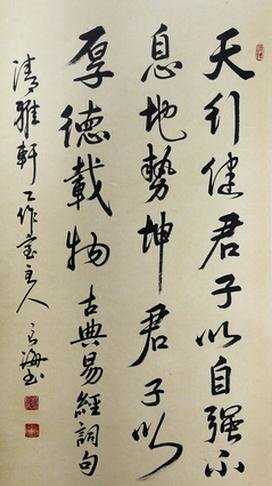 天行健君子以自强不
息地势坤君子以
厚德載物 古典易經詞句
清雅軒工作室主人 言海书